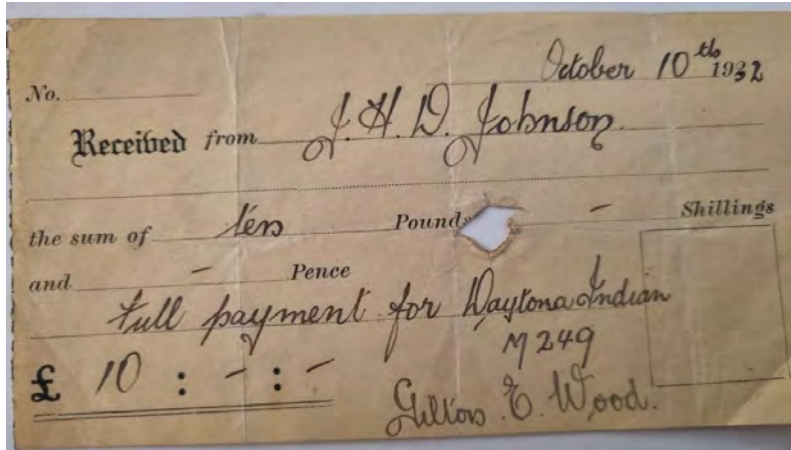 October 10th 1932
No.
Received from J. H. D. Johnson
the sum of ten Pounds - Shillings
and - Pence
Full payment for Daytona Indian
M 249
£ 10 : - : -
E. Wood.